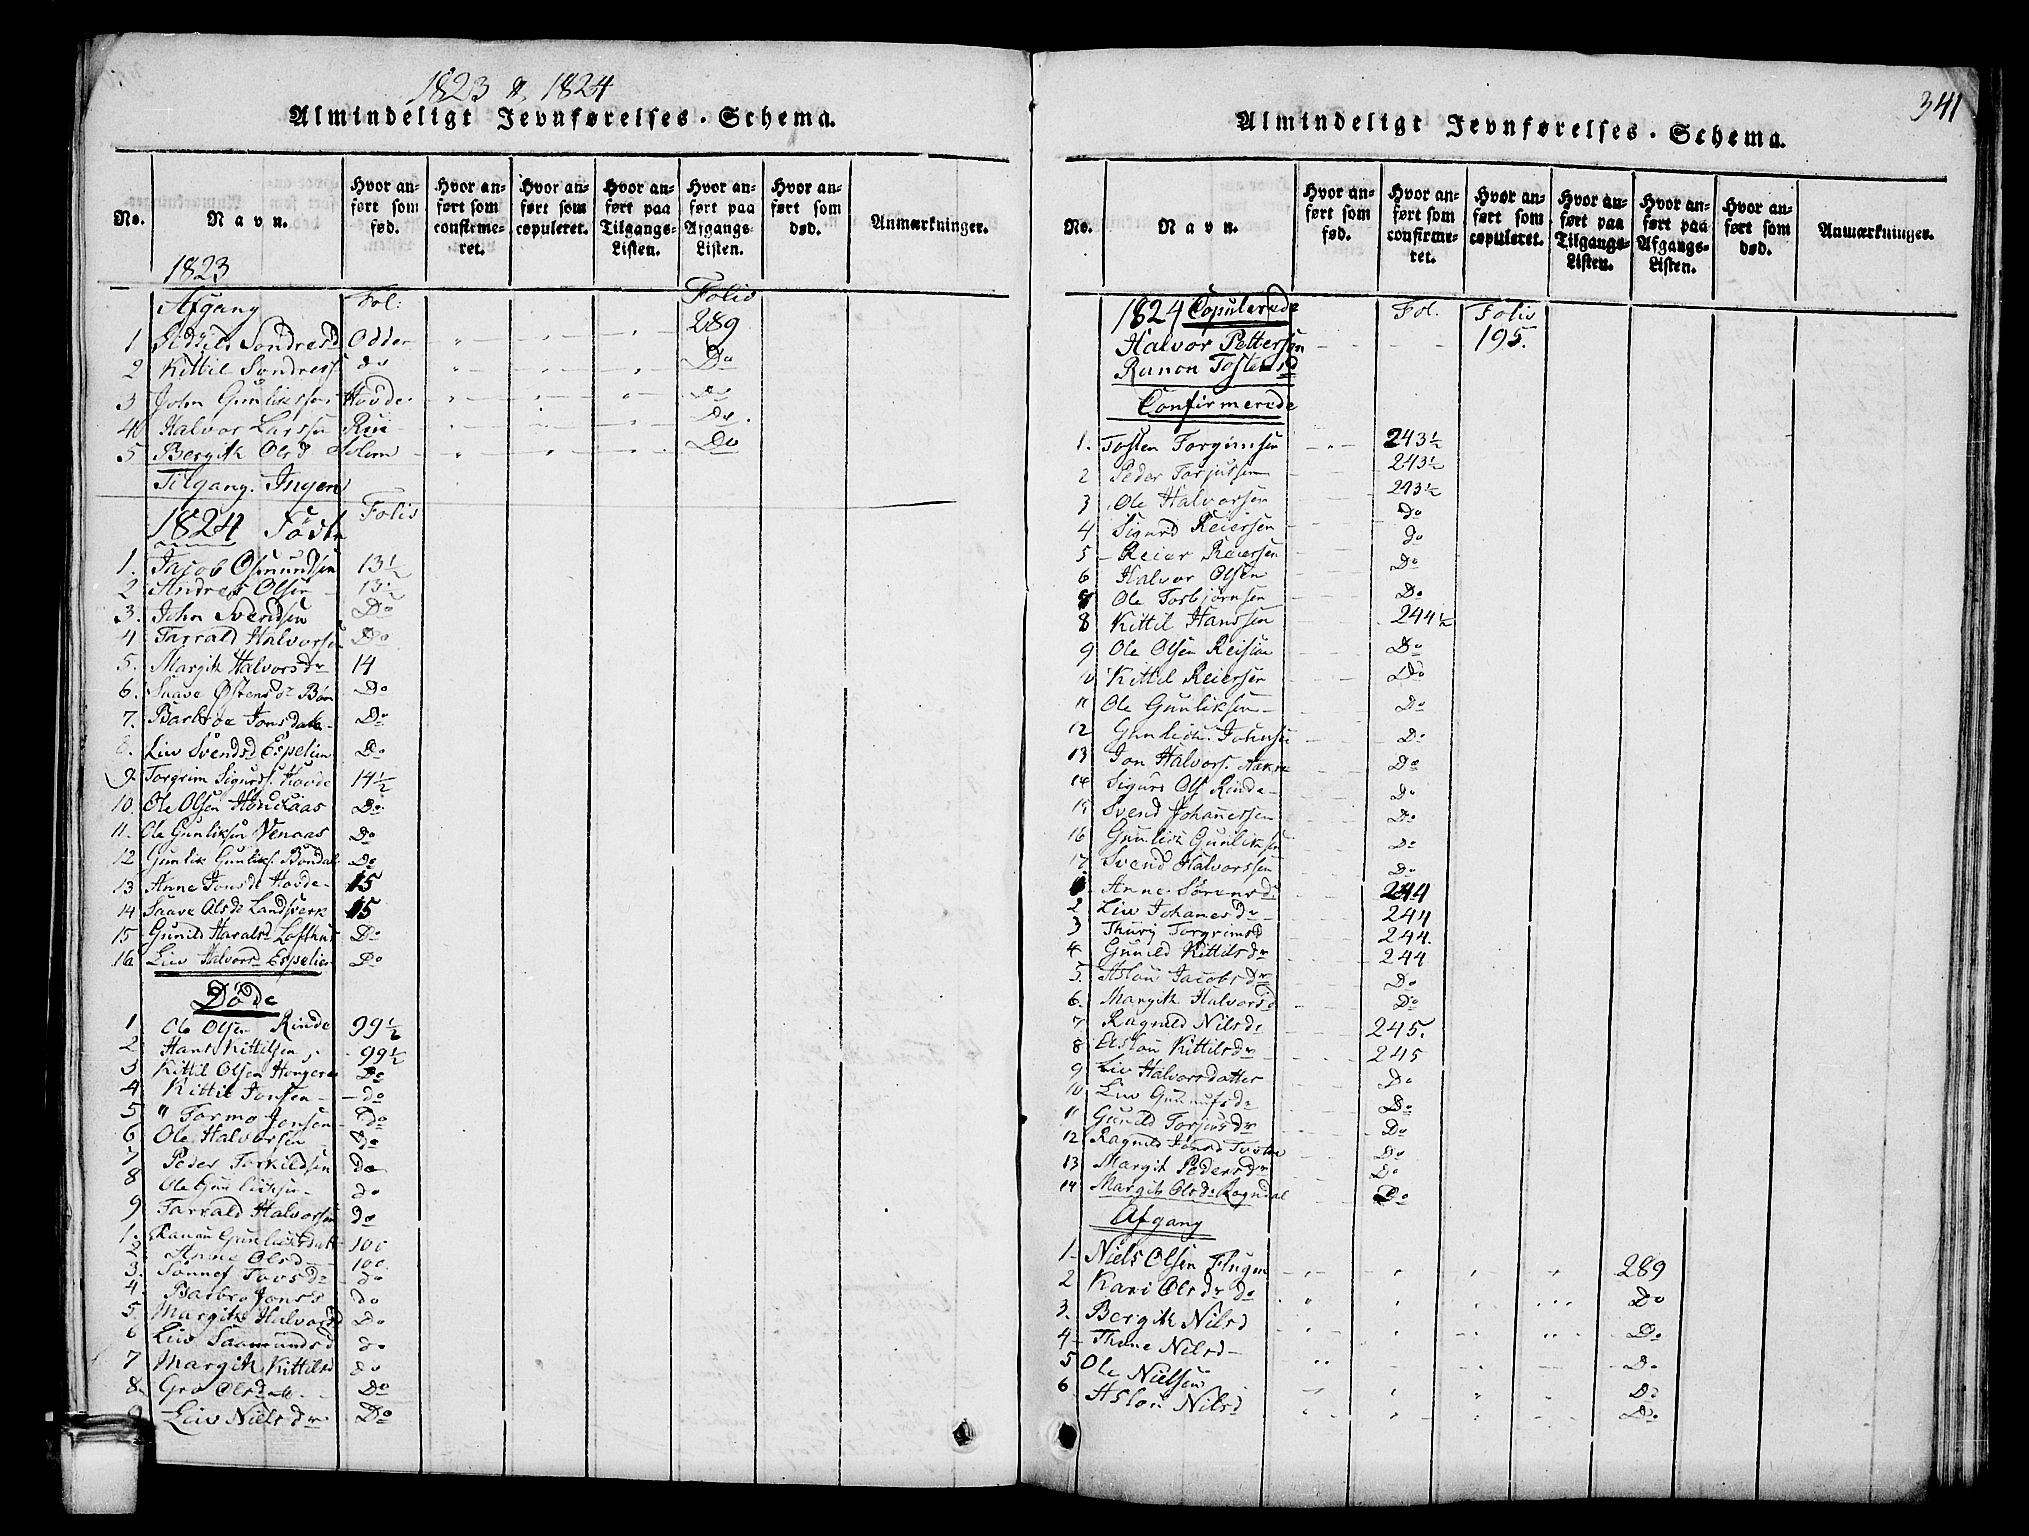 1823 & 1824
Almindeligt Jevnførelses-Schema.
No. Navn. Hvor anført som fød. Hvor anført som confirmeret. Hvor anført som copuleret. Hvor anført paa Tilgangs-Listen. Hvor anført paa Afgangs-Listen. Hvor anført som død. Anmærkninger.
1823
Afgang Fol: Folio
1 Sondresd Odden 289
2 Kittil Sondress do Do
3 John Gunlikssøn Hovde Do
4 Halvor Larssøn Rui Do
5 Bergit Olsd Solem Do
Tilgang. Ingen
1824 Födte Folio
1. Jacob Osmundsen 13½
2 Andres Olsen 13½
3. John Svendsen Do
4 Tarrald Halvorsen Do
5. Margit Halvorsdr 14
6. Saave Østensdr Bøen Do
7. Barbroe Jonsdatr Do
8. Liv Svendsd Espelien Do
9. Torgrim Sigurds. Hovde 14½
10. Ole Olsen Do
11. Ole Gunliksen Venaas Do
12 Gunlik Gunliks. Bøndal Do
13 Anne Jonsdr Hovde 15
14 Saave Olsdr Landsverk 15
15 Gunild Haralsd Lofthus Do
16 Liv Halvorsd Espelien Do
Döde
1 Ole Olsen Rinde 99½
2 Hans Kittilsen 99½
3 Kittil Olsen Do
4 Kittil Jonsen do
5 " Tormo Jonsen do
6 Ole Halvorsen do
7 Peder Torkildsen do
8 Ole Gunlicksen do
9 Tarrald Halvorsen do
1. Ranou Gunlicksdatr 100
2. Anne Olsd 100.
3. Sönnef Tovsdr do
4. Barbro Jonsd do
5. Margit Halvorsd Do
6 Liv Saamundsd do
7 Margit Kittilsd do
8. Gro Olsdatr Do
9 Liv Nielsdr Do
341
Almindeligt Jevnførelses-Schema.
No. Navn. Hvor anført som fød. Hvor anført som confirmeret. Hvor anført som copuleret. Hvor anført paa Tilgangs-Listen. Hvor anført paa Afgangs-Listen. Hvor anført som død. Anmærkninger.
1824 Copulerede Fol. Folio
Halvor Pettersøn 195.
Ranon Tostensd
Confirmerede
1. Tosten Torgrimsen 243½
2 Peder Tarjussen 243½
3 Ole Halvorsen 243½
4 Sigurd Reiersen do
5 Reier Reiersen do
6 Halvor Olsen Do
7 Ole Torbjørnsen Do
8 Kittil Hanssen 244½
9 Ole Olsen Do
10 Kittil Reiersen Do
11 Ole Gunliksen Do
12 Gunlich Johnsen Do
13 Jon Halvors. Aakre Do
14 Sigurd Ols. Rinde Do
15 Svend Johannessen Do
16 Gunlich Gunliksen Do
17. Svend Halvorssen Do
1 Anne Sörensdr 244
2 Liv Johanesdr 244
3 Thurj Torgrimsd 244.
4 Gunild Kittilsdr 244
5. Aslau Jacobsdr Do
6. Margit Halvorsd Do
7 Ragnild Nilsdr 245.
8 Aslau Kittilsdr 245
9 Liv Halvorsdatter Do
10 Liv Do
11 Gunild Torjusdr Do
12 Ragnild Jonsd Do
13 Margit Pedersdr Do
14 Margit Olsdr Do
Afgang
1 Niels Olsen 289
2 Kari Olsdr do Do
3. Bergit Nilsd Do
4 Thone Nilsd Do
5 Ole Nielsen Do
6 Aslou Nilsd Do